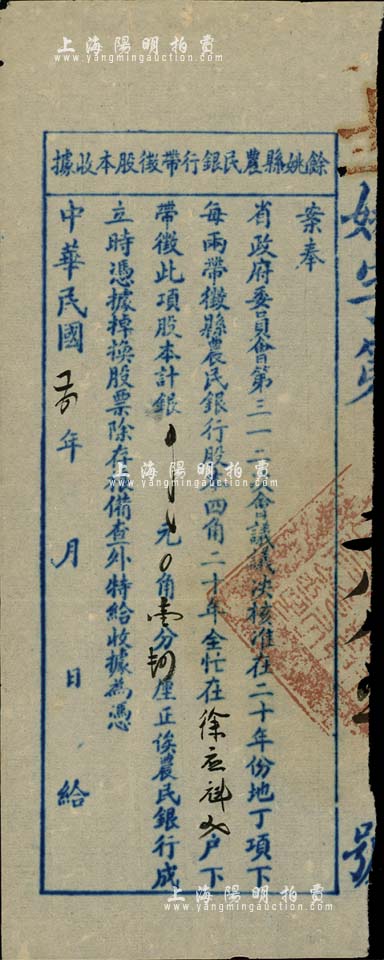 上海陽明拍賣
www.yangmingauction.com
餘姚縣農民銀行帶徵股本收據
案奉
省政府委員會第三一二次會議議決核准在二十年份地丁項下
每兩帶徵縣農民銀行股本四角二十年全忙在徐 户下
帶徵此項股本計銀 元 角壹分 厘正俟農民銀行成
立時憑據掉換股票除存根備查外特給收據為憑
中華民國 年 月 日 給
字第
號
上海陽明拍賣
www.yangmingauction.com
上海陽明拍賣
www.yangmingauction.com